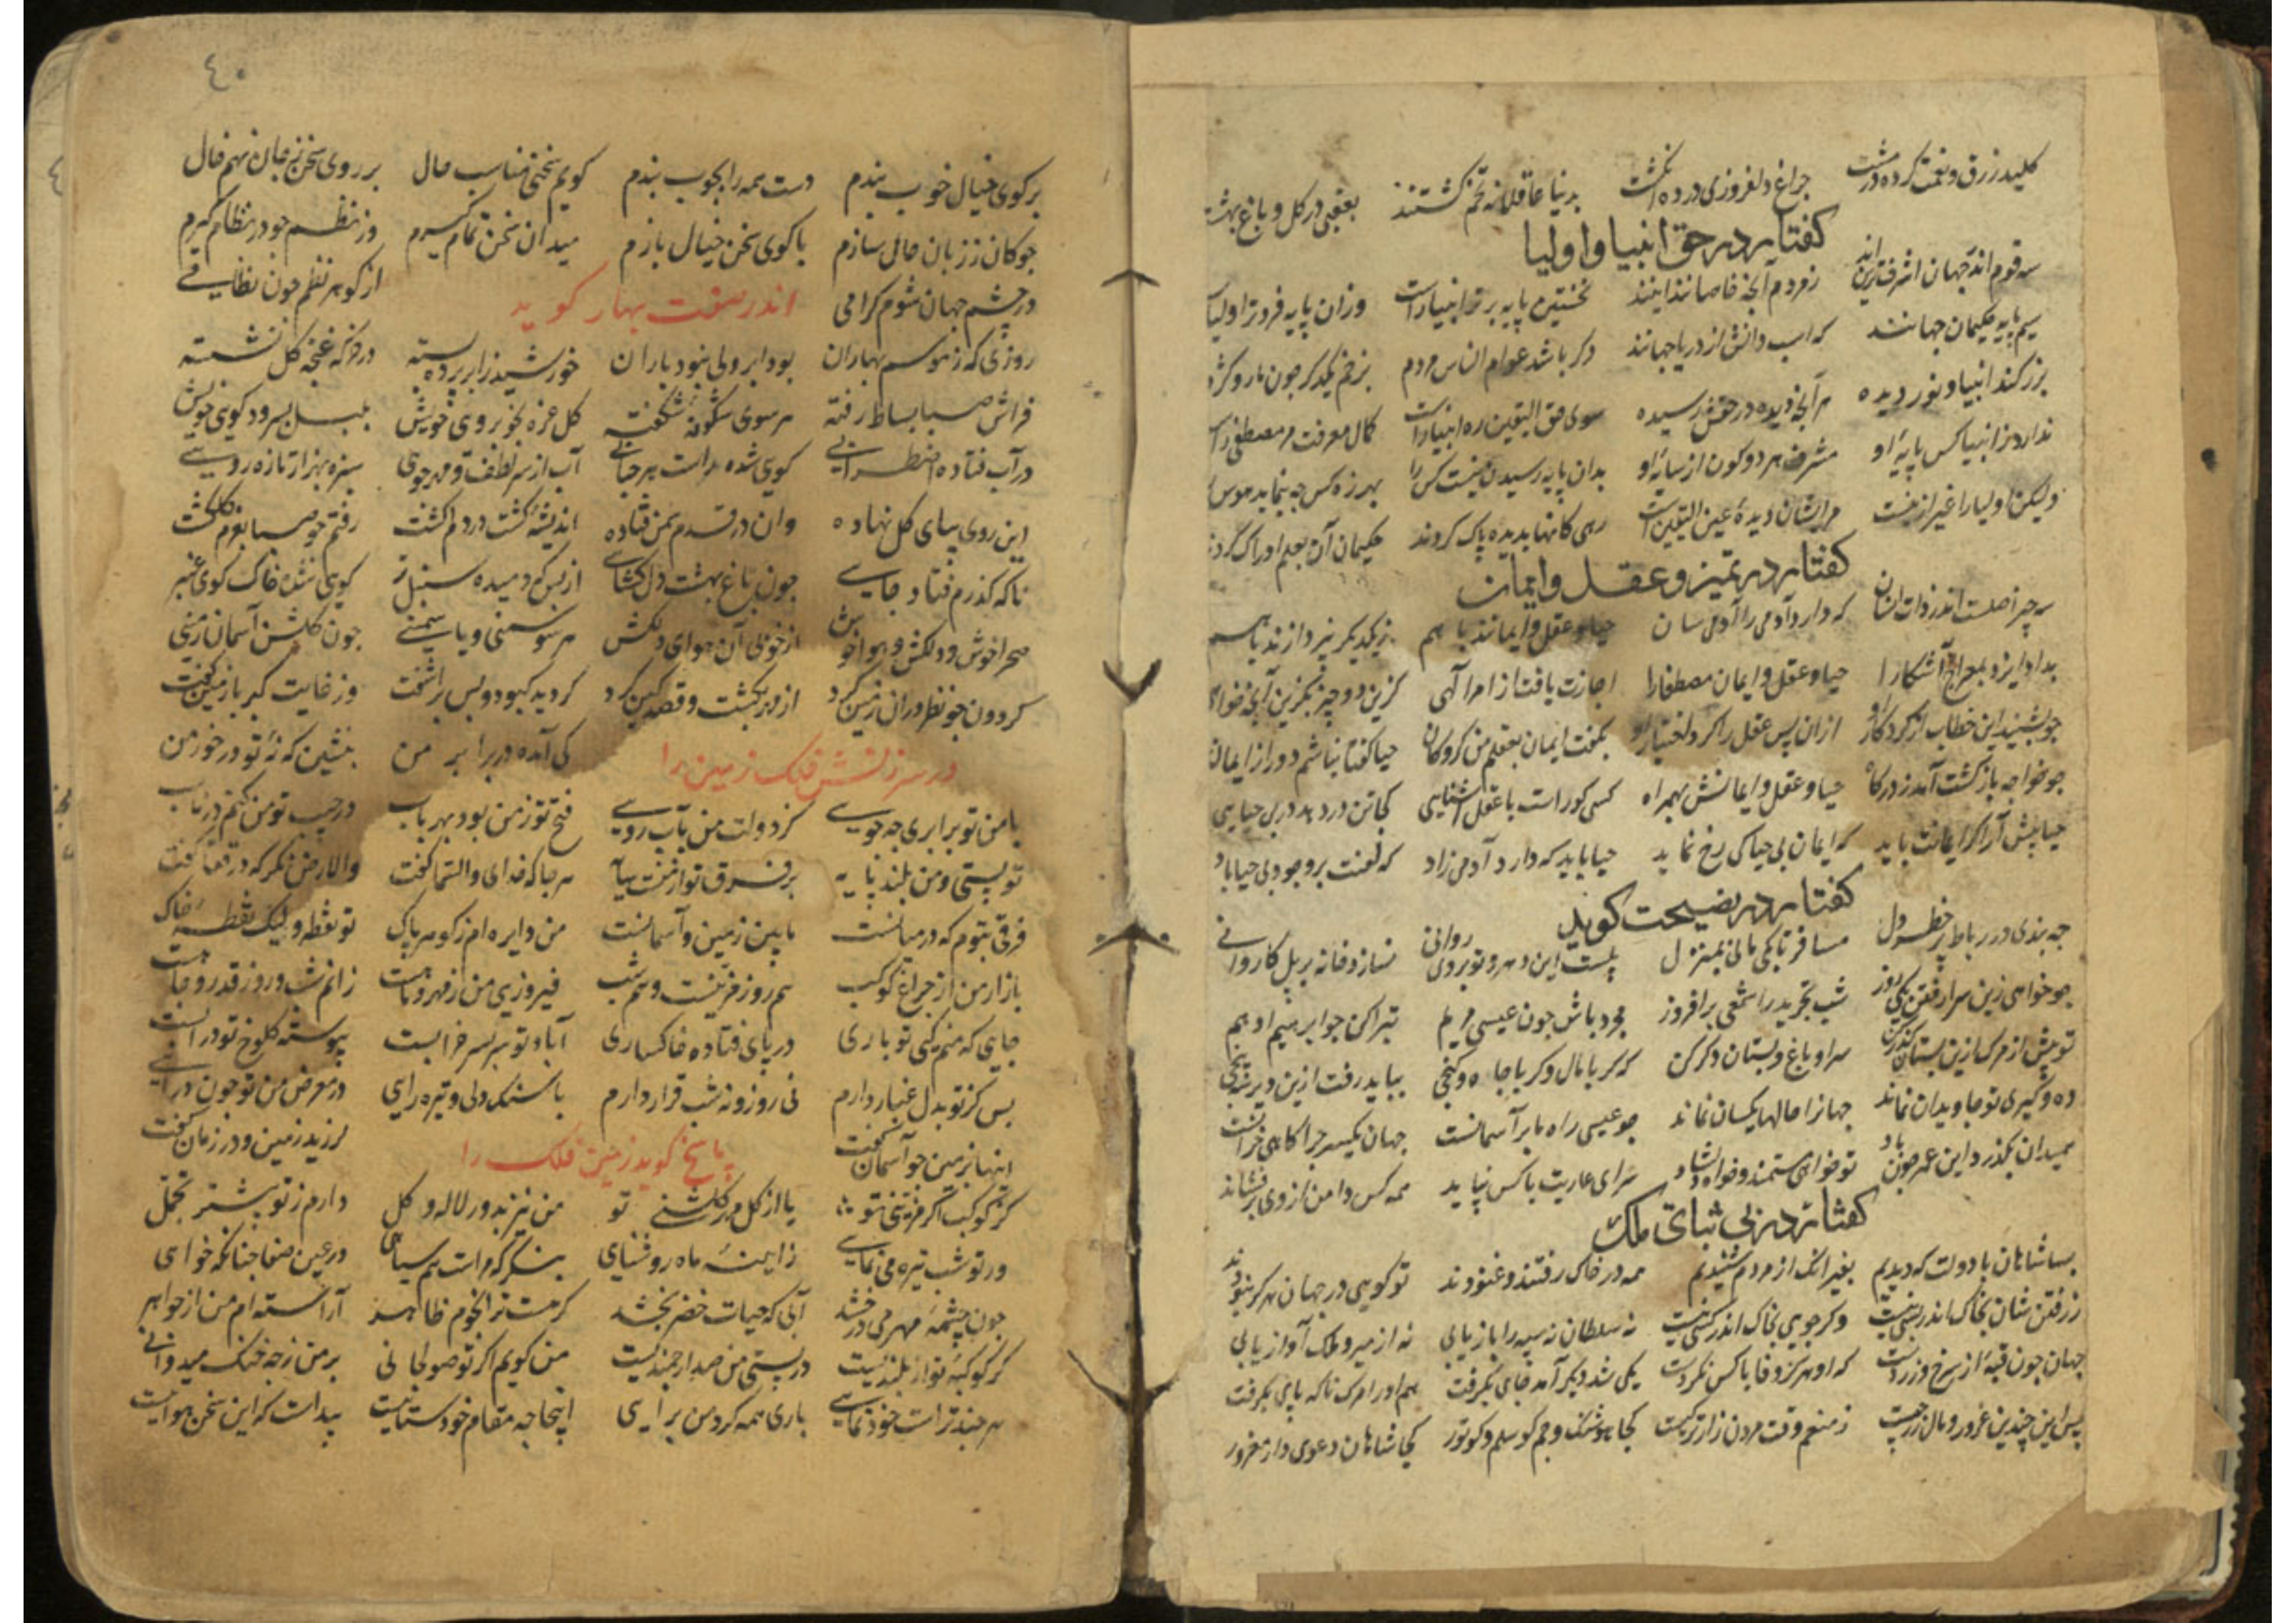 کلید رزق و نعمت کرده در مشت چراغ دلفروزی در ده انگشت بدنیا عاقلانه تخم کشتند بعقبی در کل و باغ بهشت
گفتار در حق انبیا و اولیا
سه قوم اند جهان اشرف ترین اند ز مردم آنچه خاصانند اینند نخستین پایه برتر انبیا راست وزان پایه فروتر اولیا
سیم پایه حکیمان جهانند که اسب دانش از دریا جهانند دکر باشد عوام الناس مردم بزخم یکدکر چون مار و کژدم
بزرکند انبیا و نور دیده هر آنچه دیده در حقش رسیده سوی حق الیقین ره انبیا راست کمال معرفت مر مصطفی راست
ندارد ز انبیا کس پایه او مشرف هر دو کون از سایه او بدان پایه رسیدن نیست کس را بهرزه کس چه پیماید هوس
ولیکن اولیا را غیر ازینست مر ایشان دیده عین الیقین است رهی کانها بدیده پاک کردند حکیمان آن بعلم ادراک کردند
گفتار در تمیز و عقل و ایمان
سه چیز اصلست اندر ذات انسان که دارد آدمی را آدمی سان حیا و عقل و ایمانند با هم ز یکدیکر نپردازند با هم
بداد ایزد بمعراج آشکارا حیا و عقل و ایمان مصطفا را اجازت یافت از امر آلهی کزین دو چیز بکزین آنچه خواهی
چو بشنید این خطاب از کردکار او ازان پس عقل را کرد اختیار او بکفت ایمان بعقلم من کروکان حیا کفتا نباشم دور از ایمان
چو خواجه بازکشت آمد ز درکاه حیا و عقل و ایمانش بهمراه کسی کو راست با عقل آشنایی کجا تن در دهد در بی حیایی
حیا پیش آر اکر ایمانت باید که ایمان بی حیا کی رخ نماید حیا باید که دارد آدمی زاد که لعنت بر وجود بی حیا باد
گفتار در نصیحت گوید
چه بندی در رباط پر خطر دل مسافر تا کی مانی بمنزل پلست این دهر و تو بر وی روانی نسازد خانه بر پل کاروانی
چو خواهی زین سرا رفتن یکی روز شب تجرید را شمعی برافروز مجرد باش چون عیسی مریم تبرا کن چو ابرهیم ادهم
تو پیش از مرک ازین بستان کذر کن سرا و باغ و بستان دکر کن که کر با مال و کر با جاه و کنجی بباید رفت ازین دیر سپنجی
ده و کیری تو جاویدان نماند جهانرا حالها یکسان نماند چو عیسی راه ما بر آسمانست جهان یکسر چراکاهی خرانست
بمیدان بکذرد این عمر چون باد تو خواهی مستمند و خواه دلشاد سرای عاریت با کس نپاید همه کس دامن از وی برفشاند
گفتار در بی ثباتی ملک
بسا شاهان با دولت که دیدیم بغیر انک از مردم شنیدیم همه در خاک رفتند و غنودند تو کویی در جهان هرکز نبودند
ز رفتن شان بخاک اندر شکی نیست وکر جویی بخاک اندر یکی نیست نه سلطان نه سپه را بازیابی نه از میر و ملک آواز یابی
جهان چون قبه از سرخ و زردست که او هرکز وفا با کس نکردست یکی شد دیکر آمد جای بکرفت هم او را مرک ناکه پای بکرفت
پس این چندین غرور و مال زر چیست ز منعم وقت مردن زارتر کیست کجا هوشنک و جم کو سلم و کو تور کجا شاهان دعوی دار مغرور
٤٠
بر کوی خیال خوب بندم دست همه را بچوب بندم کویم سخنی مناسب حال بر روی سخن ز جان نهم خال
چوکان ز زبان حال سازم با کوی سخن خیال بازم میدان سخن تمام کیرم وز نظم چو در نظام کیرم
در چشم جهان شوم کرامی از کوهر نظم چون نظامی
اندر صفت بهار گوید
روزی که ز موسم بهاران بود ابر ولی نبود باران خورشید ز ابر پرده بسته در خرکه غنچه کل نشسته
فراش صبا بساط رفته هر سوی شکوفه شکفته کل غره بخوبروی خویش بلبل بسرود کوی خویش
در آب فتاده اضطرابی کویی شده راست هر حبابی آب از سر لطف و مهرجوی سبزه بهزار تازه رویی
این روی بپای کل نهاده وان در قدم سمن فتاده اندیشه کشت در دم کشت رفتم چو صبا بعزم کلکشت
ناکه کذرم فتاد جایی چون باغ بهشت دلکشای از بس که دمیده سنبل تر کویی شده خاک کوی عنبر
صحرا خوش و دلکش و هوا خوش از خوبی آن هوای دلکش هر سو سمنی و یاسمینی چون کلشن آسمان زمینی
کردون چو نظر در آن زمین کرد از مهر بکشت و قصد کین کرد کردید کبود و بس برآشفت وز غایت کبر با زمین کفت
در سرزنش فلک زمین را
کی آمده در برابر من بنشین که نه تو درخور من
با من تو برابری چه جویی کز دولت من بآب رویی فتح تو ز من بود بهر باب در جیب تو من نهم در ناب
تو پستی و من بلند پایه بر فرق تو از منست سایه هر جا که خدای والسما کفت والارض نکر که در قفا کفت
فرقی بتوم که در میانست مابین زمین و آسمانست من دایره ام ز کوهر پاک تو نقطه ولیک نقطه خاک
بازار من از چراغ کوکب هم روز فرینست و هم شب فیروزی من ز مهر و ماهست زانم شب و روز قدر و جاهست
جایی که منم کیی تو باری در پای فتاده خاکساری آباد تو سربسر خرابست پیوسته کلوخ تو در آبست
بس کز تو بدل غبار دارم نی روز و نه شب قرار دارم با سنک دلی و تیره رایی در معرض من تو چون درآیی
اینها بزمین چو آسمان کفت لرزید زمین و در زمان کفت
پاسخ گوید زمین فلک را
کز کوکب اکر مزینی تو یا از کل مهر کلشنی تو من نیز بدور لاله و کل دارم ز تو بیشتر تجمل
ور تو شب تیره می نمایی ز ایینه ماه روشنایی بنکر که مراست هم سیاهی در عین صفا چنانکه خواهی
چون چشمه مهر می درخشد آبی که حیات خضر بخشد کرهست ز انجوم ظاهر آراسته ام من از جواهر
کر کوکبه تو از بلندیست در پستی من صد ارجمندیست من کویم اکر تو صولجانی بر من ز چه خنک میدوانی
هر چند تراست خودنمایی باری همه کرد من برایی اینجا چه مقام خودستاییست پیداست که این سخن هواییست